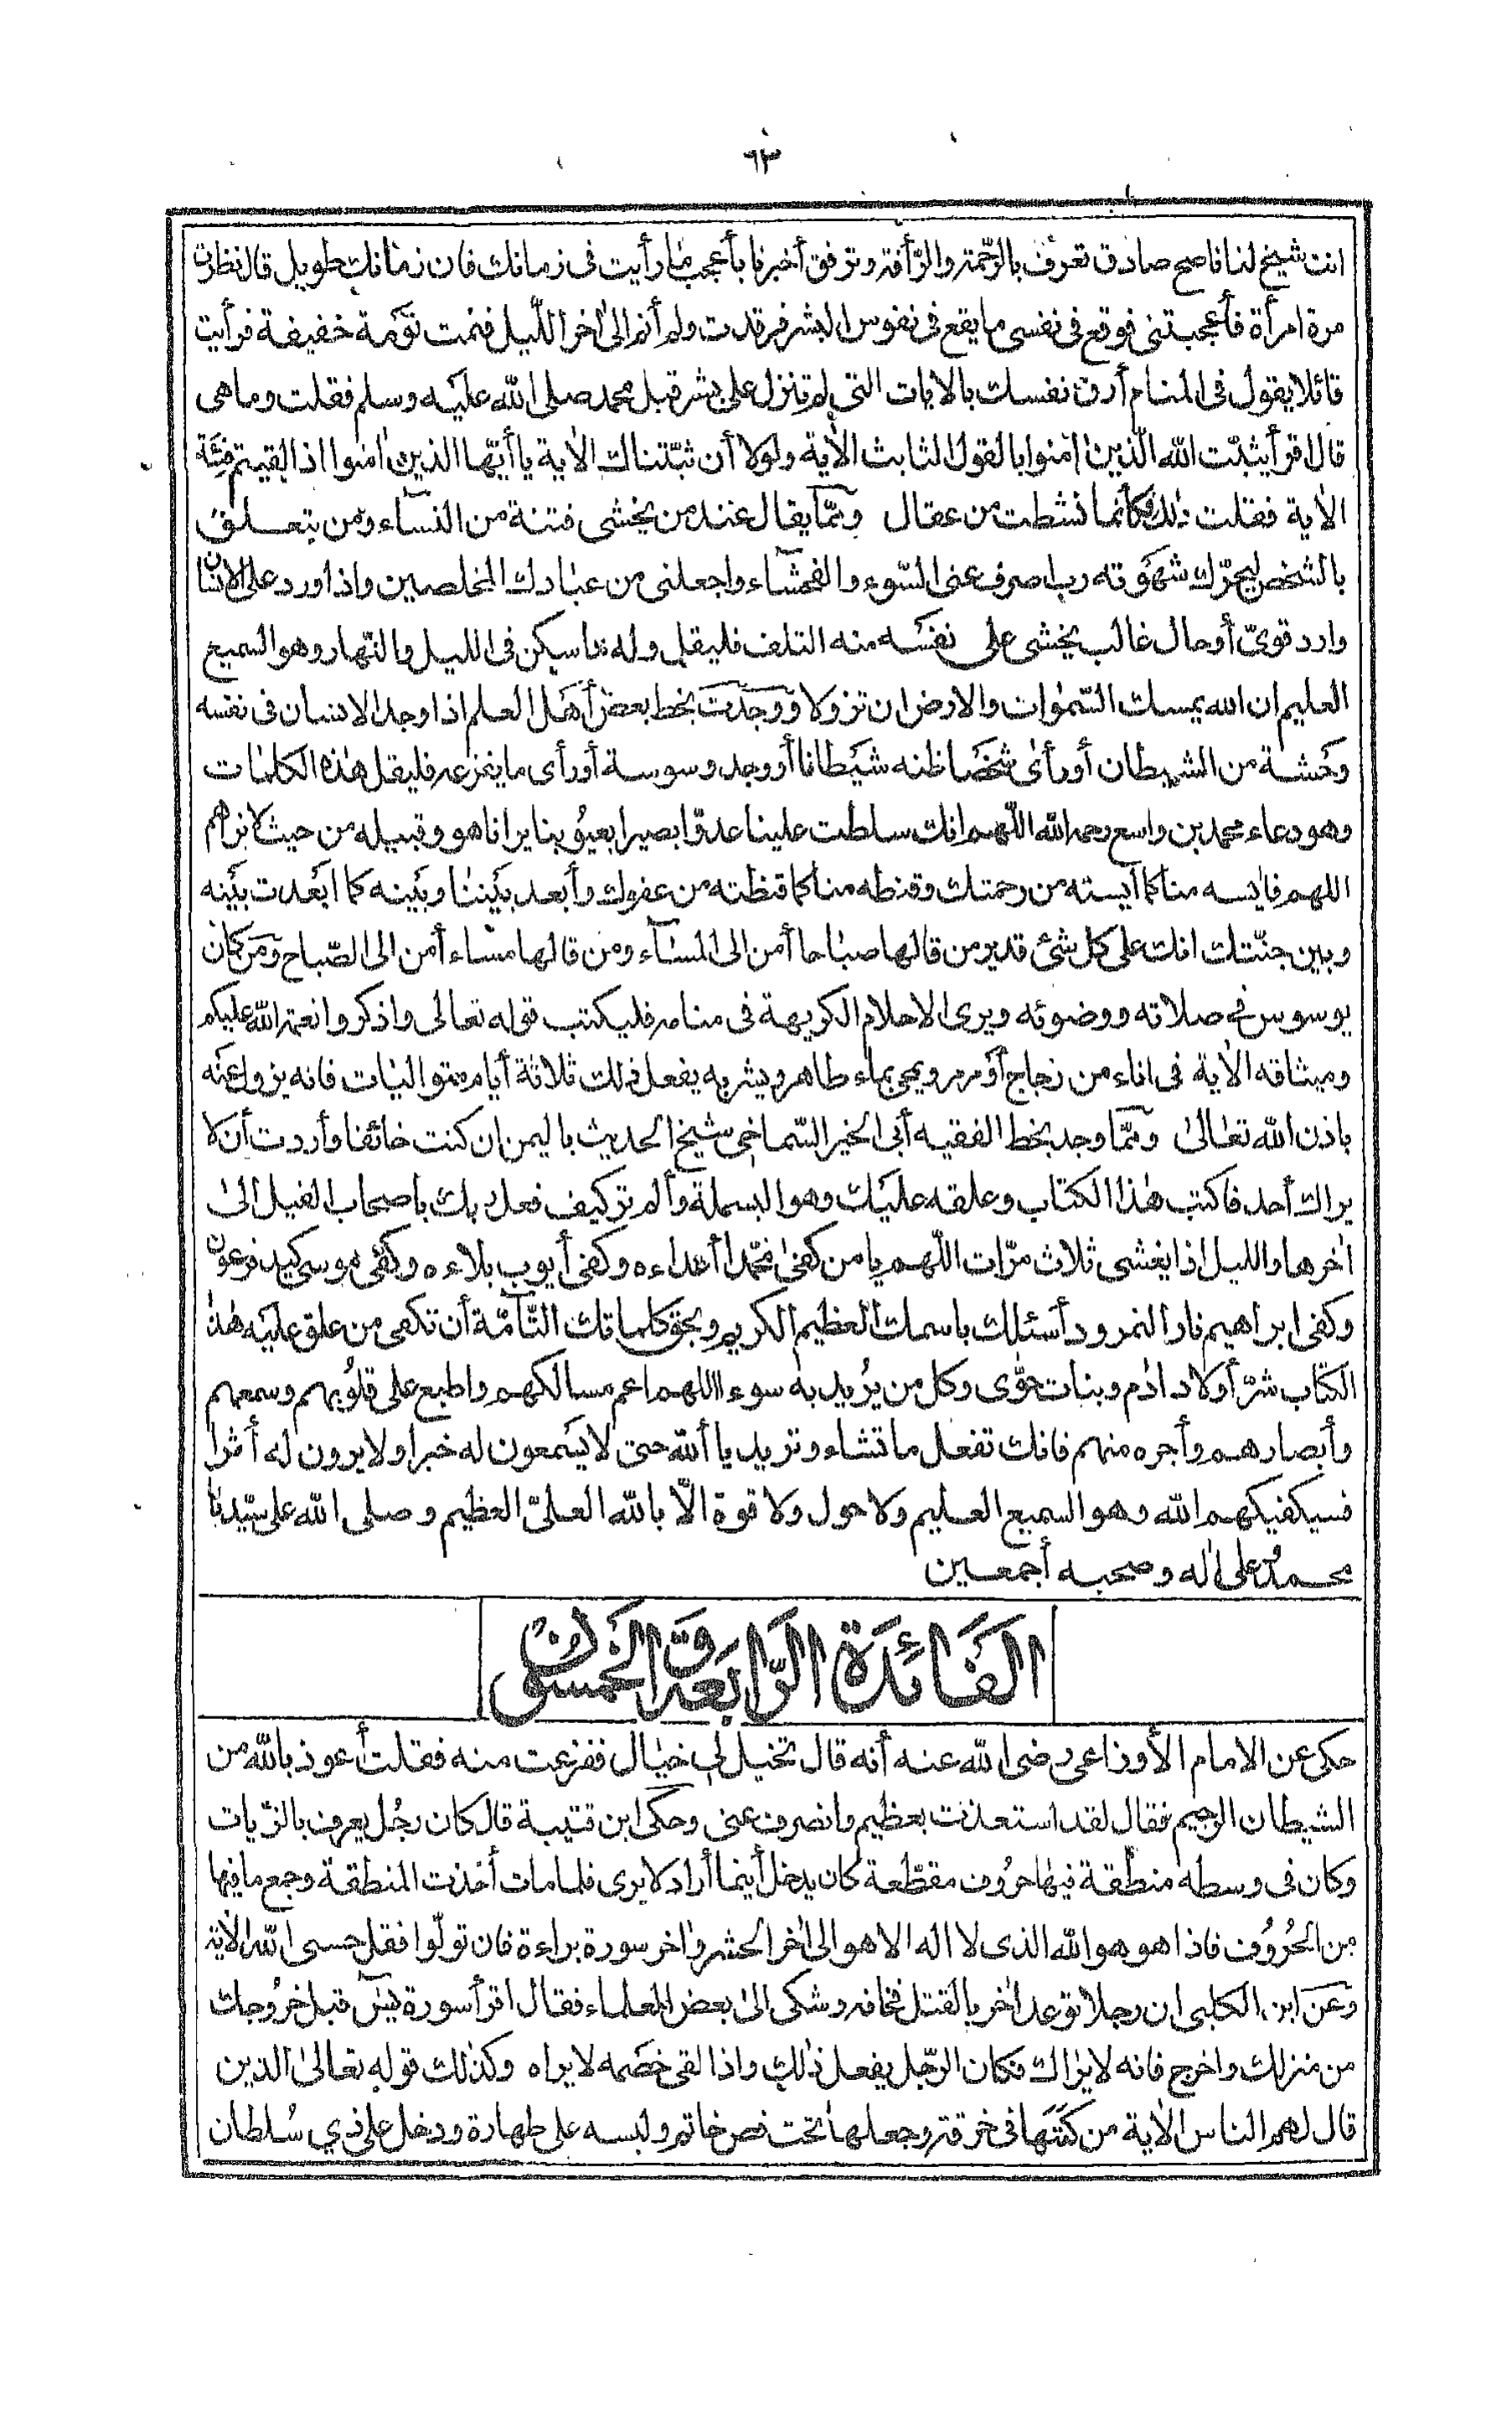 ٦٣
انت شيخ لنا ناصح صادق تعرف بالرّحمة والرّأفة وترفق أخبرنا بأعجب ما رأيت فى زمانك فان زمانك طويل قال نظرت
مرة امرأة فأعجبتنى فوقع فى نفسى ما يقع فى نفوس البشر فرقدت ولم أنم الى اٰخر اللّيل فنمت نَوْمة خفيفة فرأيت
قائلا يقول فى المنام أرق نفسك بالاٰيات التى لم تنزل على بشر قبل محمد صلى الله عليه وسلم فقلت وما هى
قال اقرأ يثبّت الله الّذين اٰمنوا بالقول الثابت الاٰية ولولا أن ثبّتناك الاٰية يا أيّها الذين اٰمنوا اذا لقيتم فئة
الاٰية فقلت ذٰلك فكأنّما نشطت من عقال وممّا يقال عند من يخشى فتنة من النسآء ومن يتعلق
بالشخص ليحرّك شهوته رب اصرف عنى السّوء والفحشآء واجعلنى من عبادك المخلصين واذا ورد على الانسان
وارد قوىّ أو حال غالب يخشى على نفسه منه التلف فليقل وله ما سكن فى الليل والنّهار وهو السميع
العليم ان الله يمسك السّمٰوات والارض ان تزولا ووجدت بخط بعض أهل العلم اذا وجد الانسان فى نفسه
وحشة من الشيطان أو رأى شخصا ظنه شيطانا أو وجد وسوسة أو رأى ما يفزعه فليقل هٰذه الكلمات
وهو دعاء محمد بن واسع رحمه الله اللّهم انك سلطت علينا عدوّا بصيرا بعيُوبنا يرانا هو وقبيله من حيث لا نراهم
اللهم فاٰيسه منا كما اٰيسته من رحمتك وقنطه منا كما قنطته من عفوك وأبعد بيننا وبينه كما ابعدت بينه
وبين جنّتك انك على كل شئ قدير من قالها صباحا أمن الى المسآء ومن قالها مساء أمن الى الصّباح ومن كان
يوسوس فى صلاته ووضوئه ويرى الاحلام الكريهة فى منامه فليكتب قوله تعالى واذكروا نعمة الله عليكم
وميثاقه الاٰية فى اناء من زجاج أو مرمر ويمحى بماء طاهر ويشربه يفعل ذٰلك ثلاثة أيام متواليات فانه يزول عنه
باذن الله تعالىٰ وممّا وجد بخط الفقيه أبى الخير الشماخى شيخ الحديث باليمن ان كنت خائفا وأردت أن لا
يراك أحد فاكتب هٰذا الكتاب وعلقه عليك وهو البسملة وألم تر كيف فعل ربك باصحاب الفيل الىٰ
اٰخرها والليل اذا يغشى ثلاث مرّات اللّهم يا من كفىٰ محمّدا أعداءه وكفى أيوب بلاءه وكفى موسى كيد فرعون
وكفى ابراهيم نار النمرود أسئلك باسمك العظيم الكريم وبحق كلماتك التآمّة أن تكفى من علق عليه هٰذا
الكتاب شرّ أولاد اٰدم وبنات حوّٰى وكل من يُريد به سوء اللهم اعم مسالكهم واطبع على قلُوبهم وسمعهم
وأبصارهم وأجره منهم فانك تفعل ما تشاء وتريد يا أللّه حتى لا يسمعون له خبرا ولا يرون له أثرا
فسيكفيكهم الله وهو السميع العليم ولا حول ولا قوة الّا بالله العلىّ العظيم وصلى الله على سيّدنا
محمد وعلى اٰله وصحبه أجمعين
الفَائدَة الرَّابعَة والخمسُون
حكى عن الامام الأوزاعى رضى الله عنه أنه قال تخيل لى خيال ففزعت منه فقلت أعوذ بالله من
الشيطان الرجيم فقال لقد استعذت بعظيم وانصرف عنى وحكى ابن قتيبة قال كان رجُل يعرف بالزّيات
وكان فى وسطه منطقة فيها حرُوف مقطّعة كان يدخل أينما أراد لا يرى فلما مات أخذت المنطقة وجمع ما فيها
من الحُرُوف فاذا هو هو الله الذى لا اله الا هو الى اٰخر الحشر واٰخر سورة براءة فان تولّوا فقل حسبى الله الاٰية
وعن ابن الكلبى ان رجلا توعد اٰخر بالقتل فخافه وشكى الىٰ بعض العلماء فقال اقرأ سورة يسٓ قبل خرُوجك
من منزلك واخرج فانه لا يراك فكان الرّجل يفعل ذٰلك واذا لقى خصمه لا يراه وكذٰلك قوله تعالىٰ الذين
قال لهم الناس الاٰية من كتبها فى خرقة وجعلها تحت فص خاتم ولبسه على طهارة ودخل على ذي سُلطان